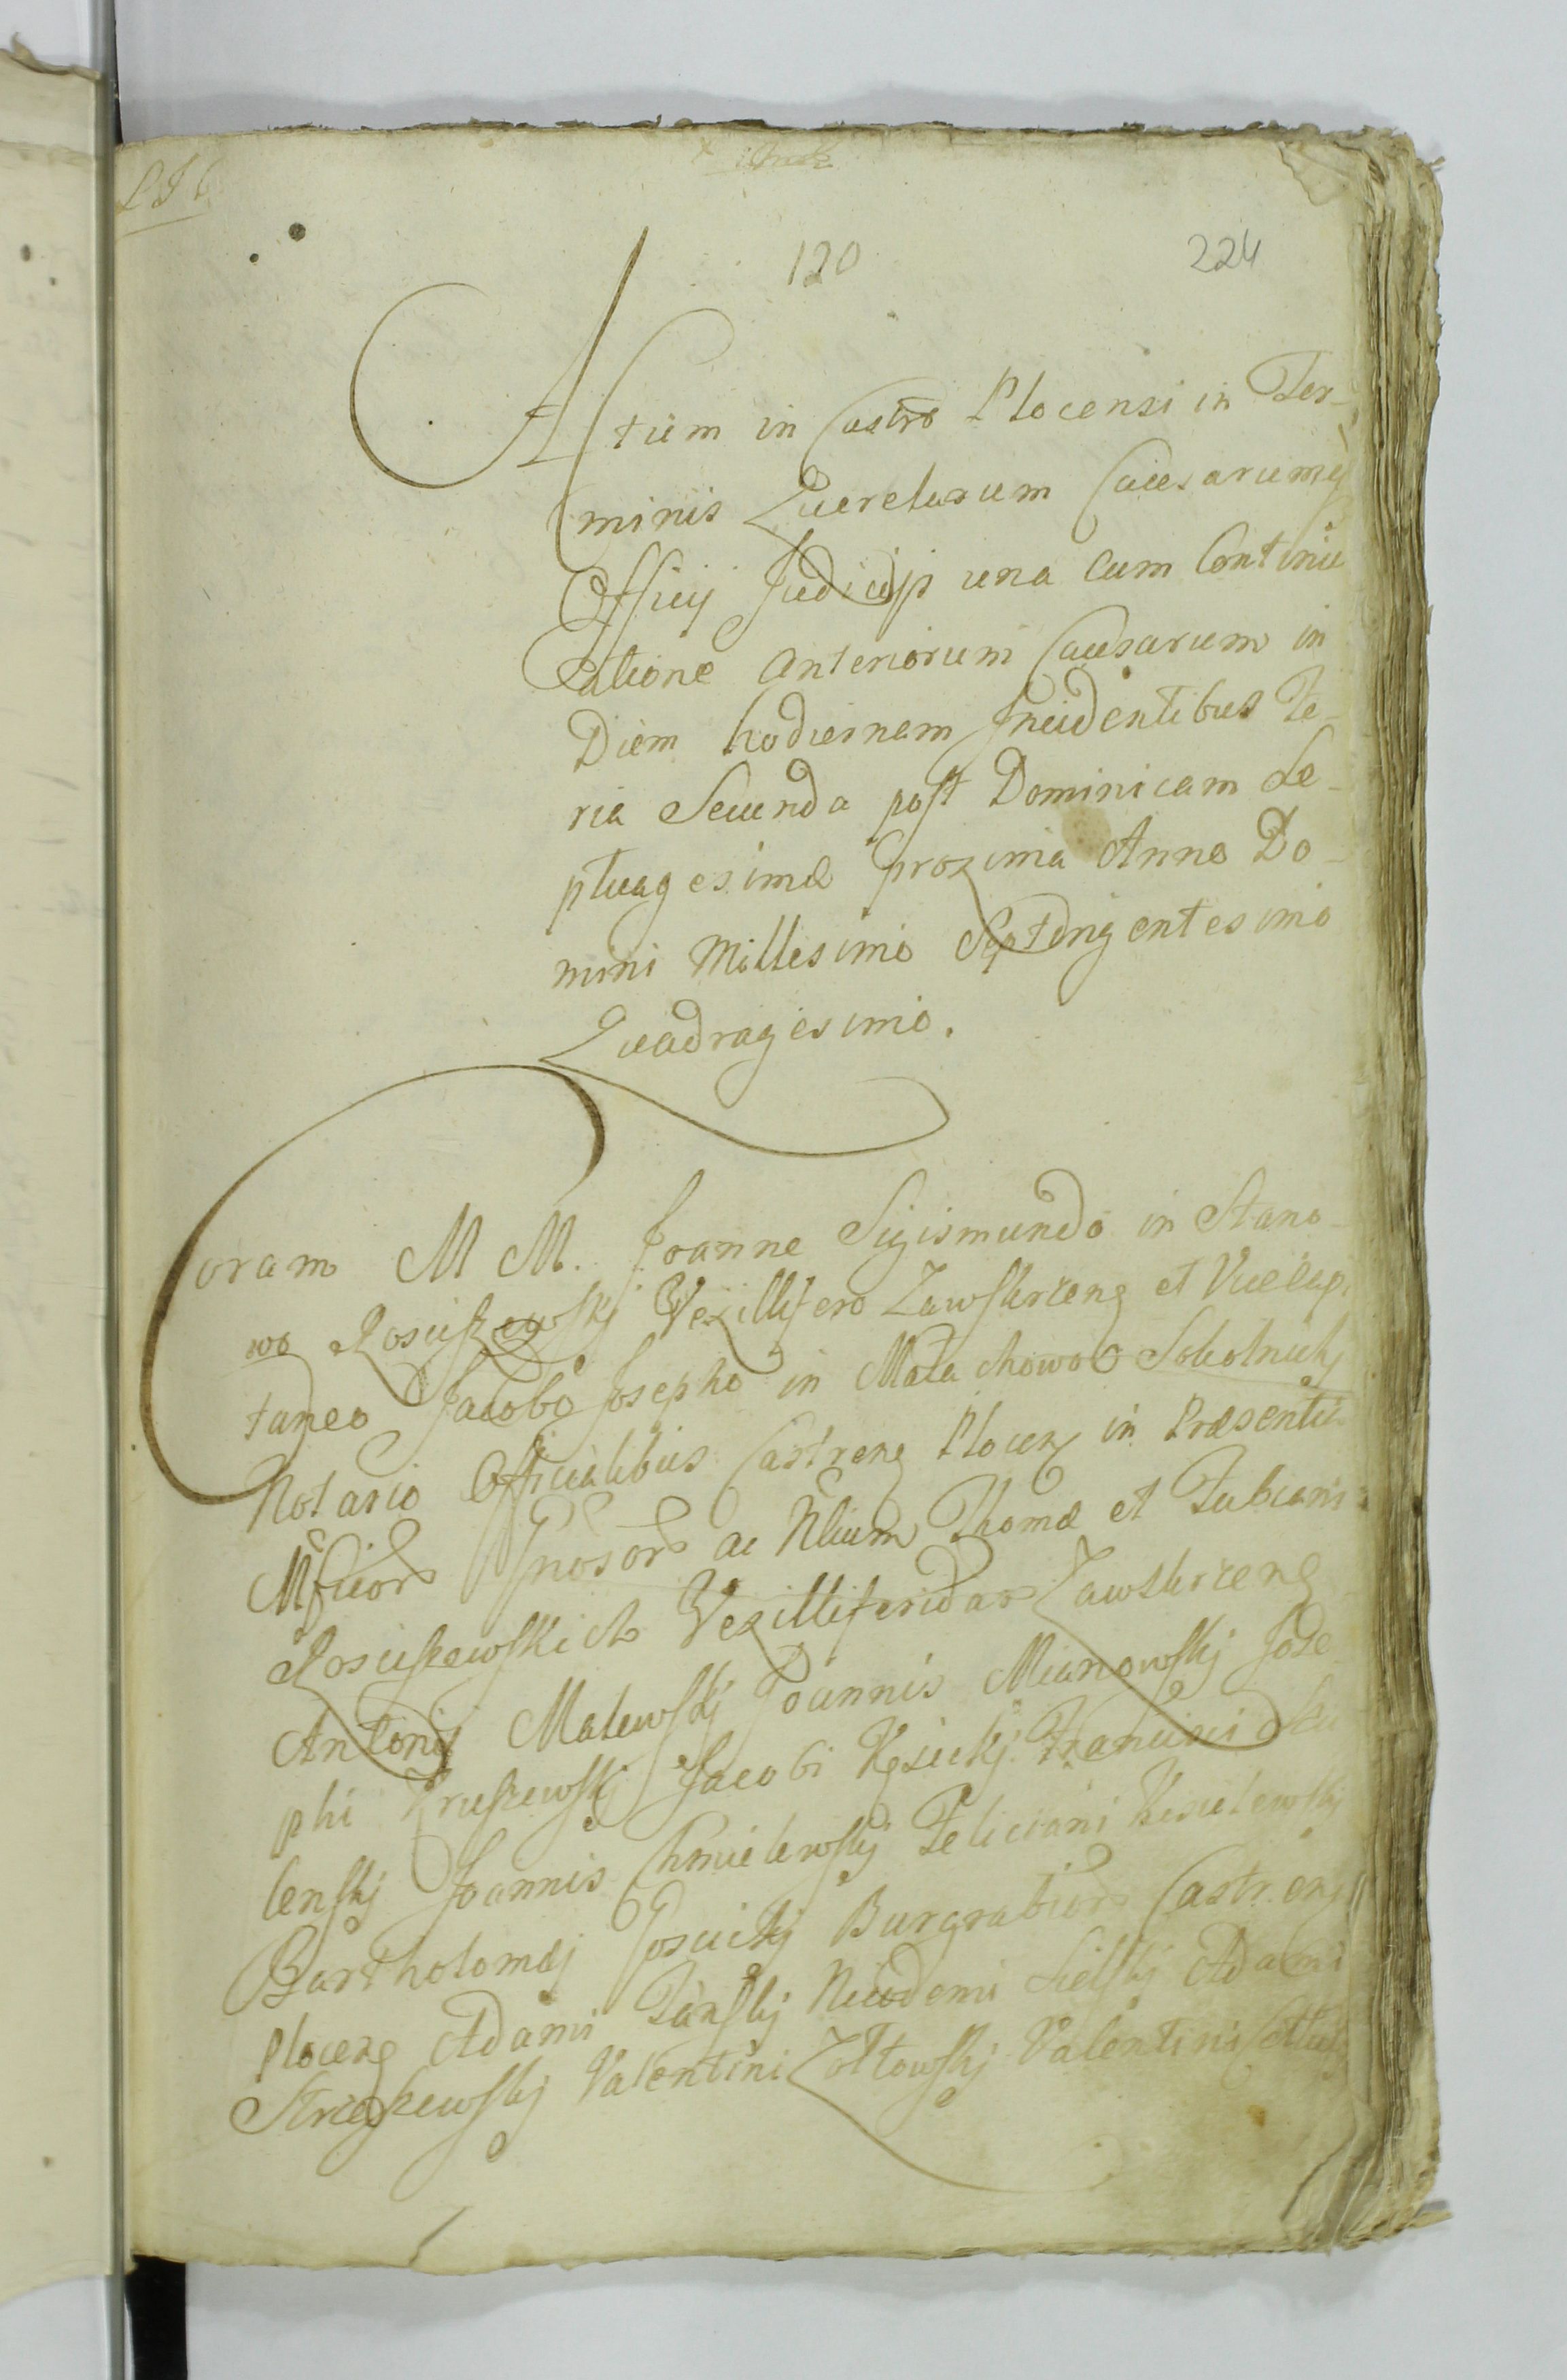 120
224
Actum in Castro Plocensi in Ter-
minis Querelarum Causarumq
Officij Judicijs una cum Continu
atione Anteriorum Causarum in
Diem hodiernam Incidentibus Fe-
ria Secunda post Dominicam Se-
ptuagesimæ proxima Anno Do-
mini Millesimo Septingentesimo
Quadragesimo.
Coram M M. Joanne Sigismundo in Stano-
wo Rosciszewskj Vexillifero Zawskrzeng et Vicecap.
taneo Jacobo Josepho in Małachowo Sokolnickj
Notario Officialibus Castreng Plocen in Præsentia
Mficor Gnosor ac Nlium Thomæ et Fabiani
Rosciszewskich Vexilliferidar Zawskrzeng
Antonij Malewskj Joannis Mianowskj Jose
phi Kruszewskj Jacobi Kęsickj Francisci Su
lenskj Joannis Chmielewskj Feliciani Kisielewskj
Bartholomæj Goscickj Burgrabior Castreng
Ploceng Adami Tanskj Nicodemi Sielskj Adami
Strzeszewskj Valentini Zołtowskj Valentini